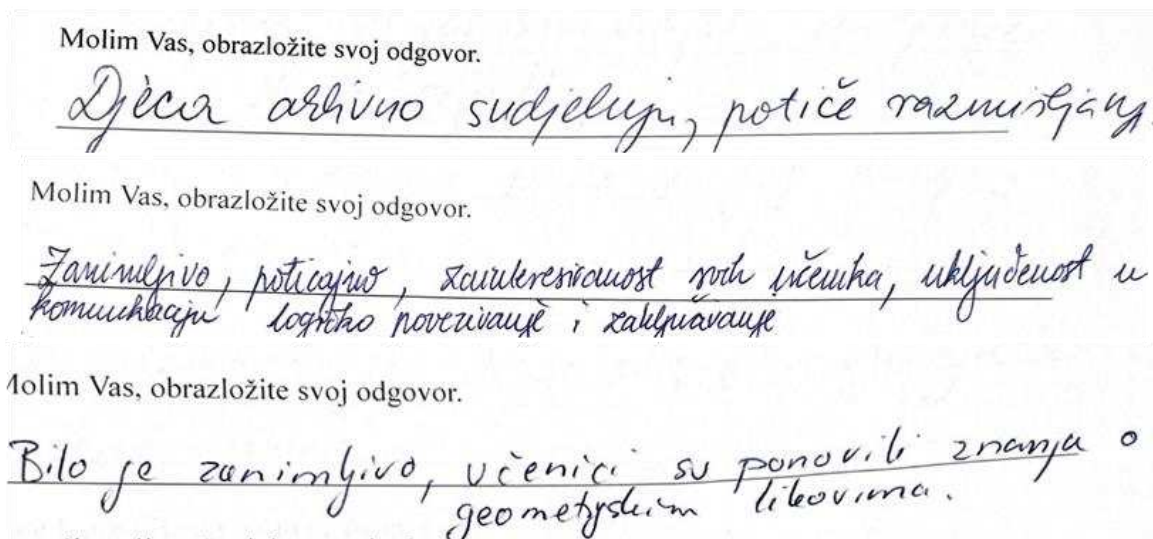 Molim Vas, obrazložite svoj odgovor.
Djeca aktivno sudjeluju, potiče razmišljanje.
Molim Vas, obrazložite svoj odgovor.
Zanimljivo, poticajno, zainteresiranost svih učenika, uključenost u
komunikaciju logičko povezivanje i zaključivanje
Molim Vas, obrazložite svoj odgovor.
Bilo je zanimljivo, učenici su ponovili znanja o
geometrijskim likovima.